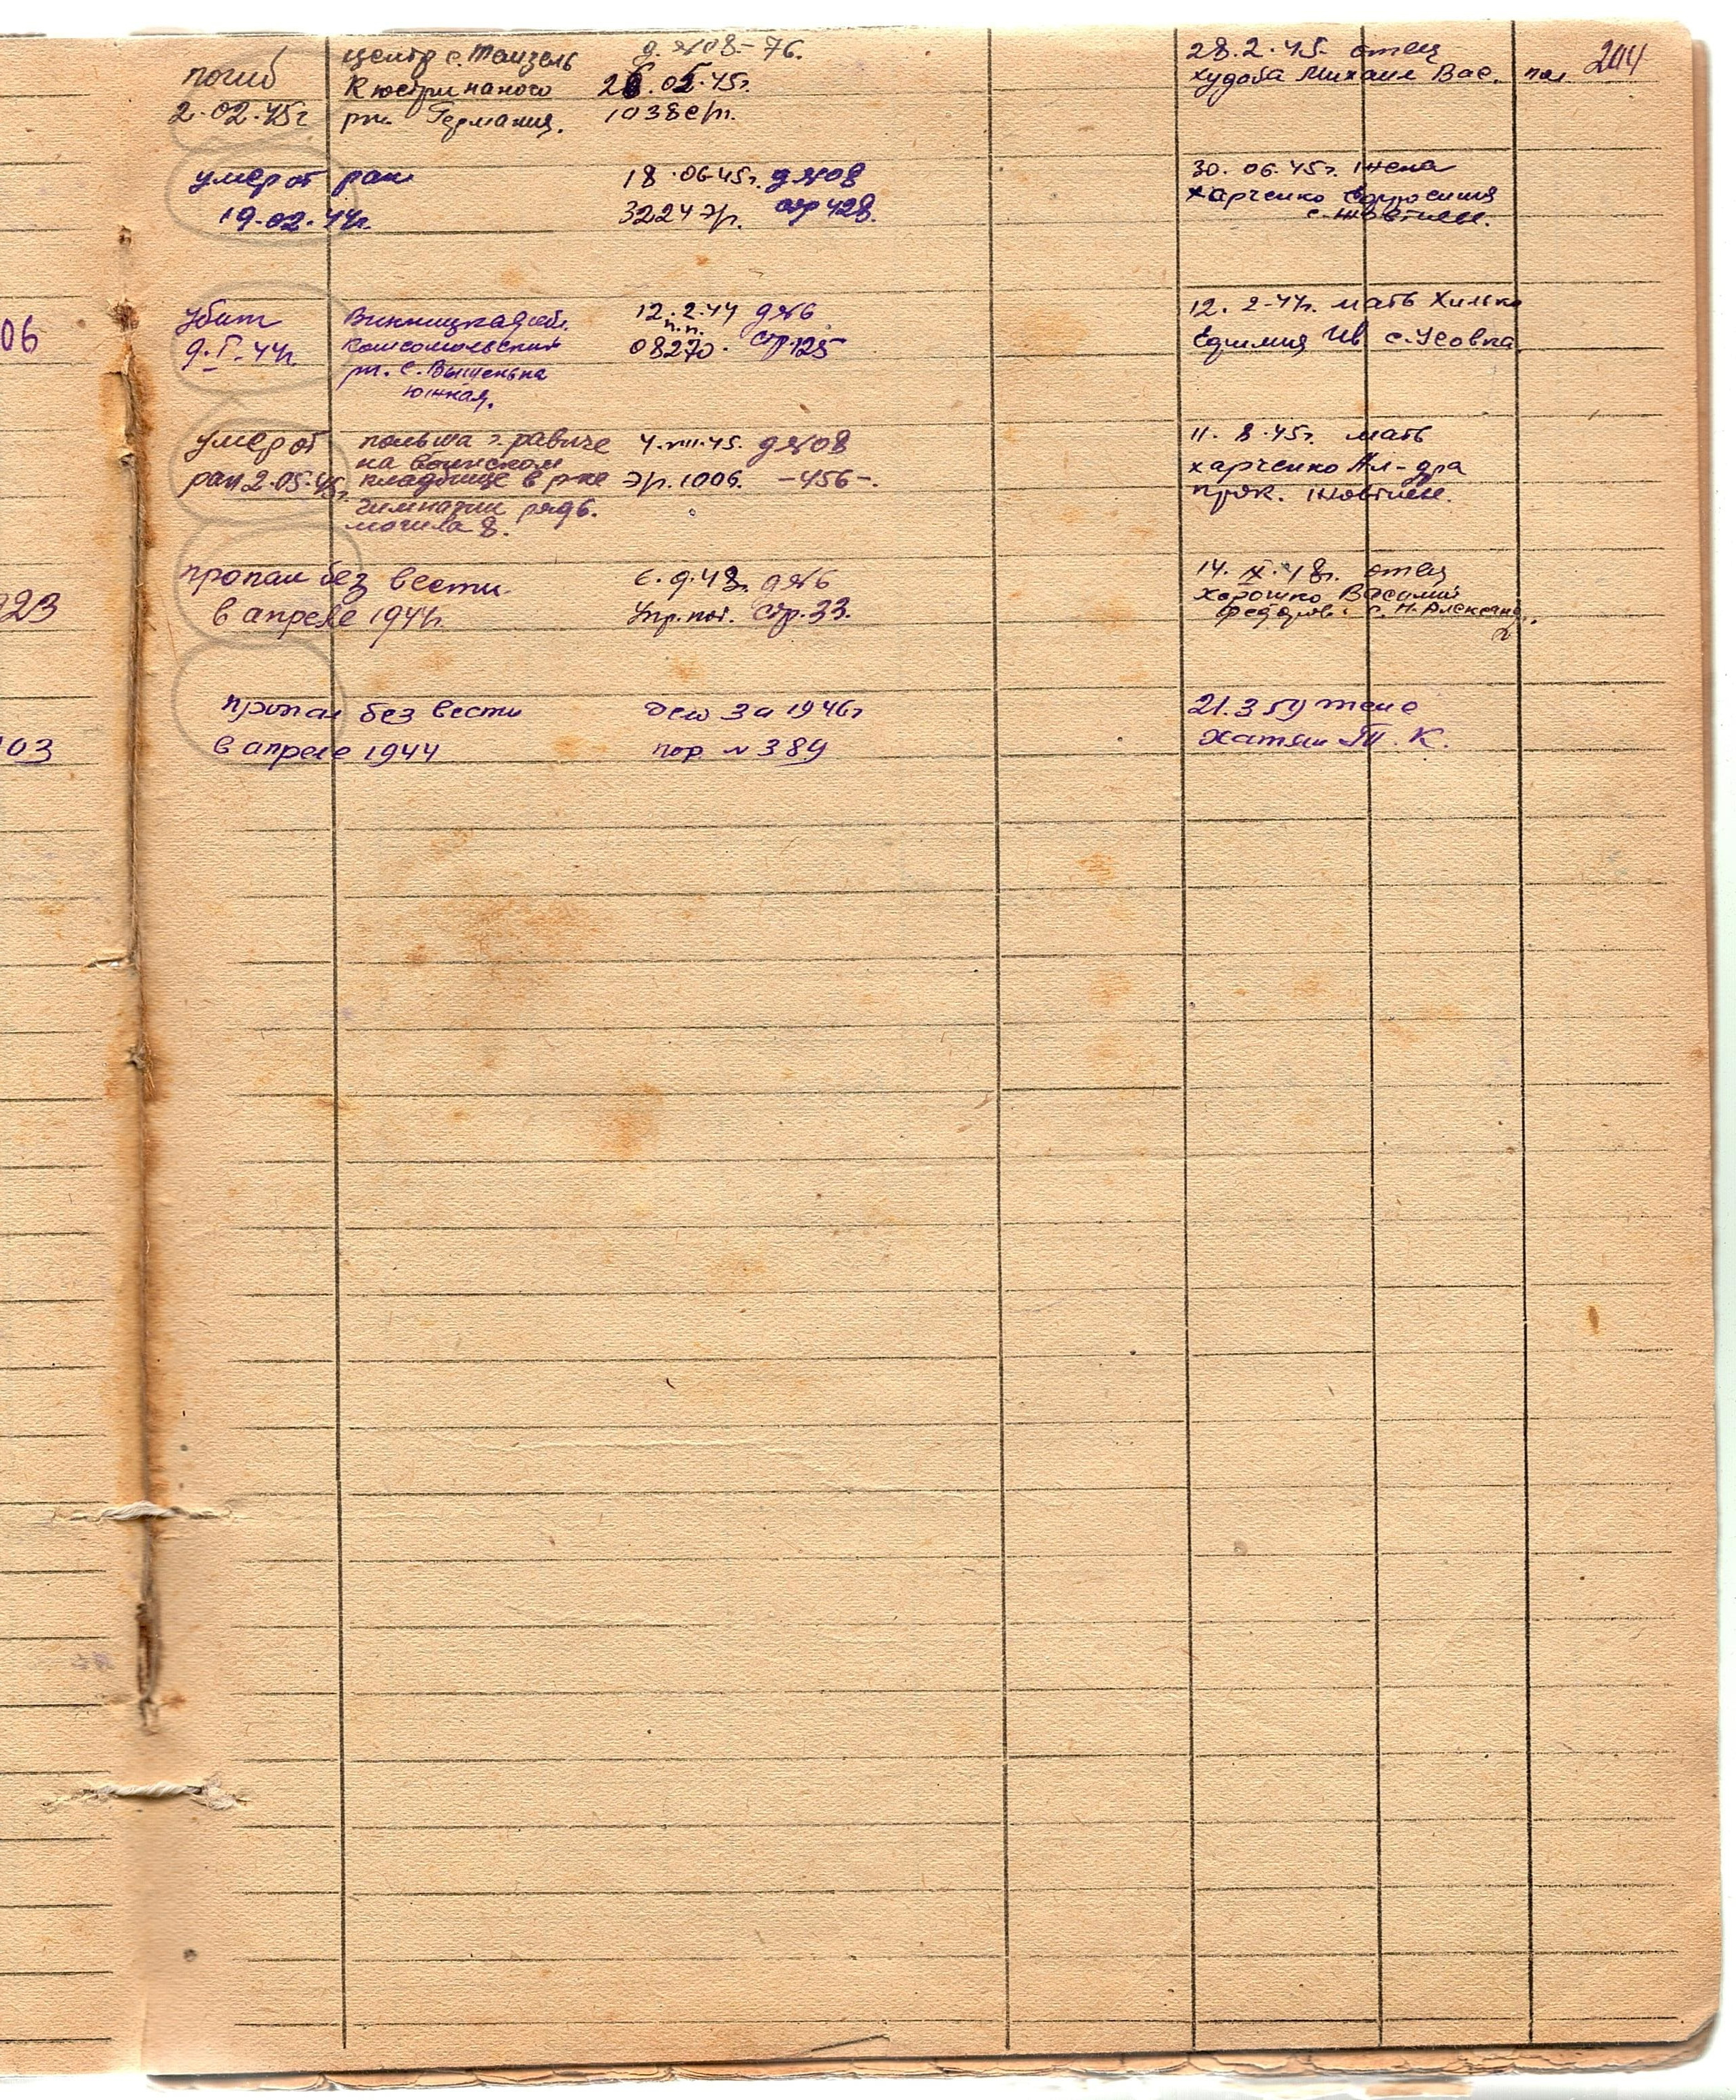 204
погиб
2.02.45г
центр с. Тамзель
Кюстринаного
рн. Германия.
д.№08-76.
28.02.45г.
1038с/т.
28.2.45. отец
Худоба Михаил Вас.
умер от ран
19.02.44г.
18.06.45г. д№08
3224э/р. стр 428.
30.06.45г. жена
Харченко Ефросиния
с. Жовтнев.
06
Убит
9.I.44г
Винницкая обл.
Комсомольский
рн. с. Вышенька
южная.
12.2.44 д№6
п.п.
08270. стр.125
12.2.44г. мать Хилько
Ефимия Ив с. Усовка
умер от
ран 2.05.45г.
польша г. равиче
на воинском
кладбище в рне
гимназии ряд6.
могила 8.
4.VIII.45. д№08
Э/р.1006. -456-.
11.8.45г. мать
Харченко Ал-дра
Жовтнев.
923
пропал без вести
в апреле 1944г.
6.9.48. д№6
Упр.пог. Стр.33.
14.IX.48г. отец
Хорошко Василий
Федоров. с. Н. Александ.
103
пропал без вести
в апреле 1944
дело за 1946г
пор №389
21.3 59 жене
Т. К.